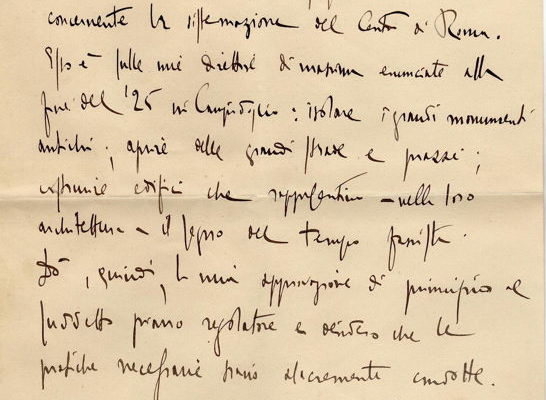 concernente la sistemazione del Centro di Roma.
Esso è sulle mie direttive di massima enunciate alla
fine del '25 in Campidoglio: isolare i grandi monumenti
antichi; aprire delle grandi strade e piazze;
costruire edifici che rappresentino - nella loro
architettura - il segno del tempo fascista.
Dò, quindi, la mia approvazione di principio al
suddetto piano regolatore e desidero che le
pratiche necessarie siano alacremente condotte.